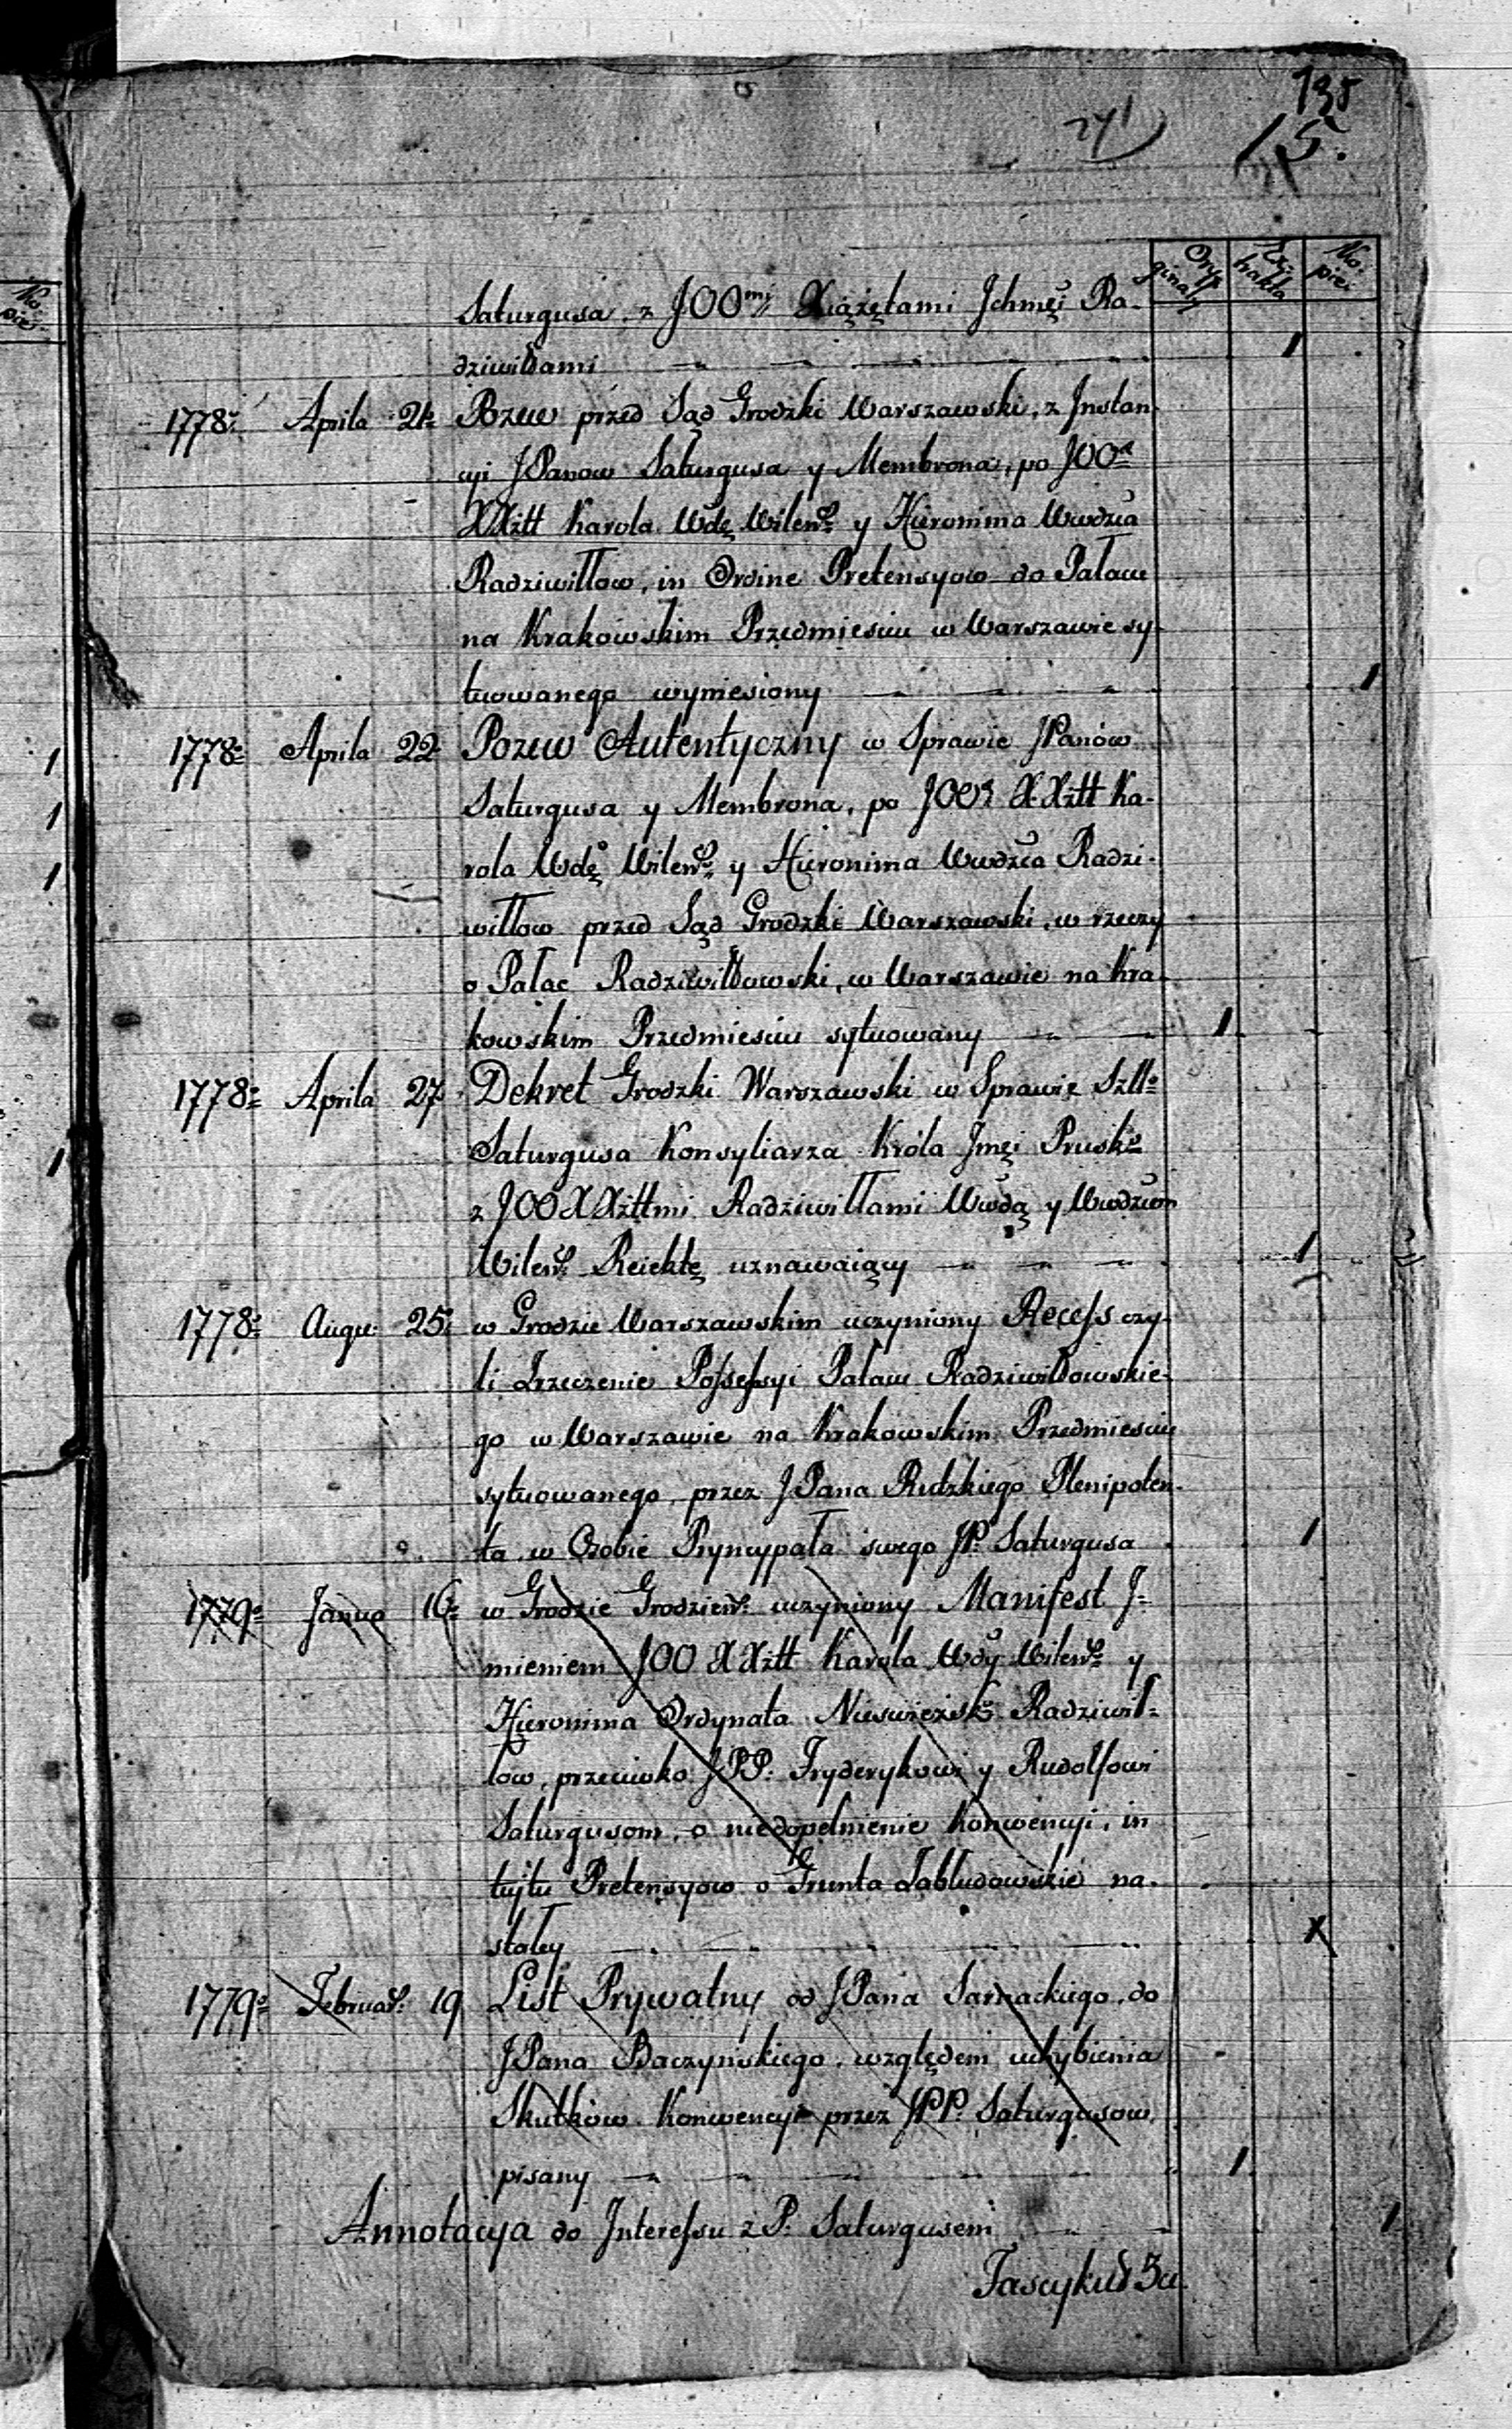 135
241)
15.
Ory-
ginały
Ex-
trakta
Ko-
pie.
Ko-
pie.
Saturgusa, z JOOmi Xiążętami Jchmęi Ra-
dziwiłłami
1
1778o Aprila 21o Pozew przed Sąd Grodzki Warszawski, z Instan-
cyi JPanow Saturgusa y Membrona, po JOOh
XXżtt Karola Wdę Wileńo y Hieronima Wwdzca
Radziwiłłow, in Ordine Pretensyow do Pałacu
na Krakowskim Przedmiesciu w Warszawie sy-
tuowanego wyniesiony
1
1778o Aprila 22 Pozew Autentyczny w Sprawie JPanów
Saturgusa y Membrona, po JOOh XXżtt Ka-
rola Wdę Wileńo y Hieronima Wwdzca Radzi-
wiłłow przed Sąd Grodzki Warszawski, w rzeczy
o Pałac Radziwiłłowski, w Warszawie na Kra-
kowskim Przedmiesciu sytuowany
1
1778o Aprila 27 Dekret Grodzki Warszawski w Sprawie Szlło
Saturgusa Konsyliarza Króla Jmęi Prusko
z JOO XXżttmi Radziwiłłami Wwdą y Wwdzcem
Wileńo Reiektę uznawaiący
1
1778o Augu: 25o w Grodzie Warszawskim uczyniony Recess czy-
li Zrzeczenie Possessyi Pałacu Radziwiłłowskie-
go w Warszawie na Krakowskim Przedmiesciu
sytuowanego, przez JPana Rudzkiego Plenipoten-
ta w Osobie Pryncypała swego JP. Saturgusa
1
1779o Janua 16o w Grodzie Grodzień: uczyniony Manifest J-
mieniem JOO XXżtt Karola Wdy Wileńo y
Hieronima Ordynata Nieswiezsko Radziwił-
łow, przeciwko JPP. Fryderykowi y Rudolfowi
Saturgusom, o niedopełnienie Konwencyi, in
tuitu Pretensyow o Grunta Zabłudowskie na-
stałey
X
1779o Februar: 19 List Prywatny od JPana Sarnackiego, do
JPana Baczynskiego, względem uchybienia
Skutkow Konwencyi przez JPP. Saturgusow,
pisany
1
Annotacya do Interessu z P. Saturgusem
1
Fascykuł 3ci
1
1
1
1